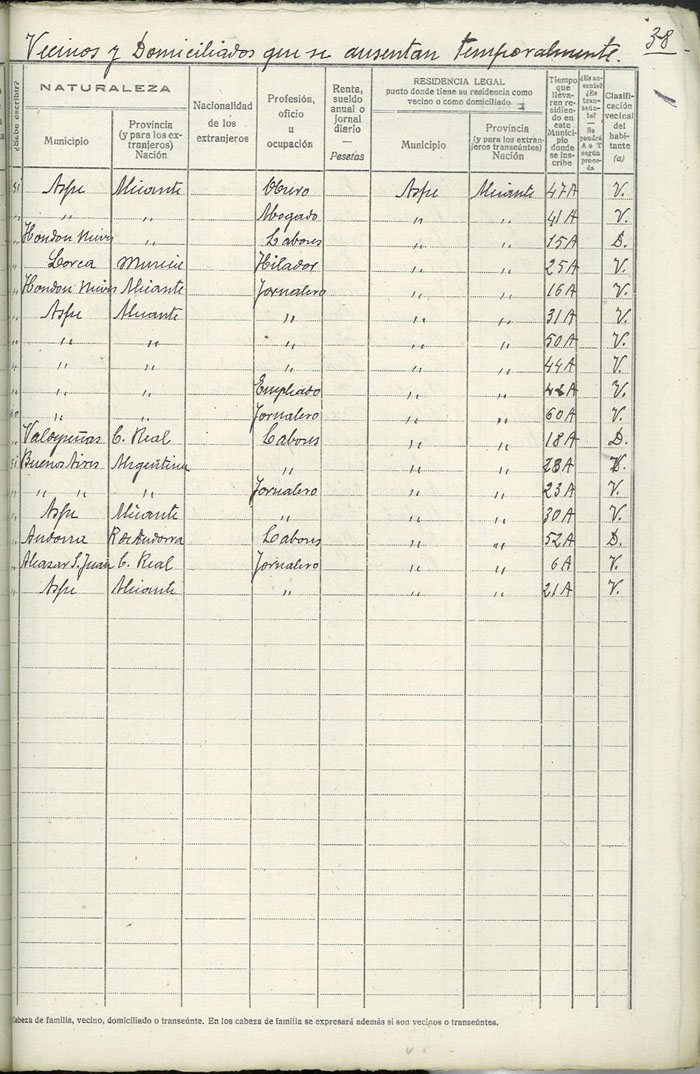 38
Vecinos y Domiciliados que se ausentan temporalmente.
¿Sabe escribir?
NATURALEZA
Municipio
Provincia (y para los extranjeros) Nación
Nacionalidad de los extranjeros
Profesión, oficio u ocupación
Renta, sueldo anual o jornal diario — Pesetas
RESIDENCIA LEGAL
punto donde tiene su residencia como vecino o como domiciliado
Municipio
Provincia (y para los extranjeros transeúntes) Nación
Tiempo que llevaren residiendo en este Municipio donde se inscribe
¿Es ausente? ¿Es transeúnte? — Se pondrá A o T según proceda
Clasificación vecinal del habitante (a)
si Aspe Alicante Obrero Aspe Alicante 47 A V.
" " " Abogado " " 41 A V.
" Hondon Nieves " Labores " " 15 A D.
" Lorca Murcia Hilador " " 25 A V.
" Hondon Nieves Alicante Jornalero " " 16 A V.
" Aspe Alicante " " " 31 A V.
" " " " " " 50 A V.
" " " " " " 44 A V.
" " " Empleado " " A V.
no " " Jornalero " " 60 A V.
" Valdepeñas C. Real Labores " " 18 A D.
si Buenos Aires Argentina " " " 23 A V.
" " " " Jornalero " " 23 A V.
" Aspe Alicante " " " 30 A V.
" Andorra R de Andorra Labores " " 52 A D.
" Alcazar S. Juan C. Real Jornalero " " 6 A V.
" Aspe Alicante " " " 21 A V.
cabeza de familia, vecino, domiciliado o transeúnte. En los cabeza de familia se expresará además si son vecinos o transeúntes.